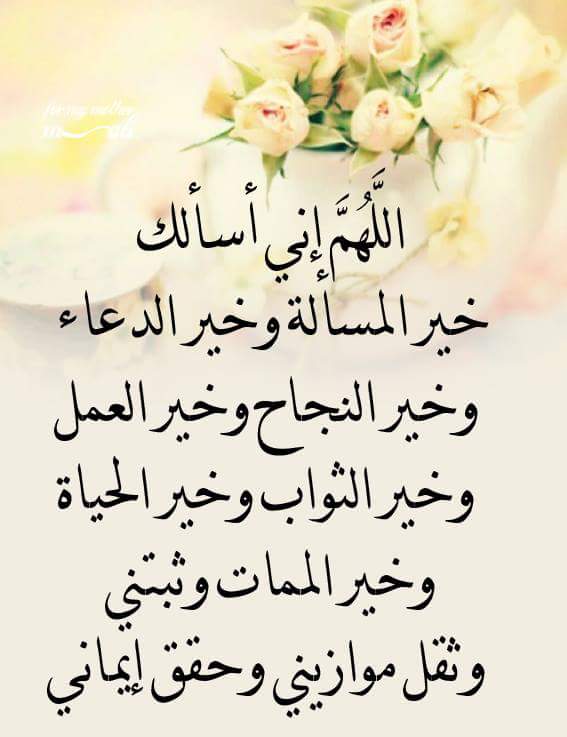 for my mother
اللَّهُمَّ إني أسألك
خير المسألة وخير الدعاء
وخير النجاح وخير العمل
وخير الثواب وخير الحياة
وخير الممات وثبتني
وثقل موازيني وحقق إيماني